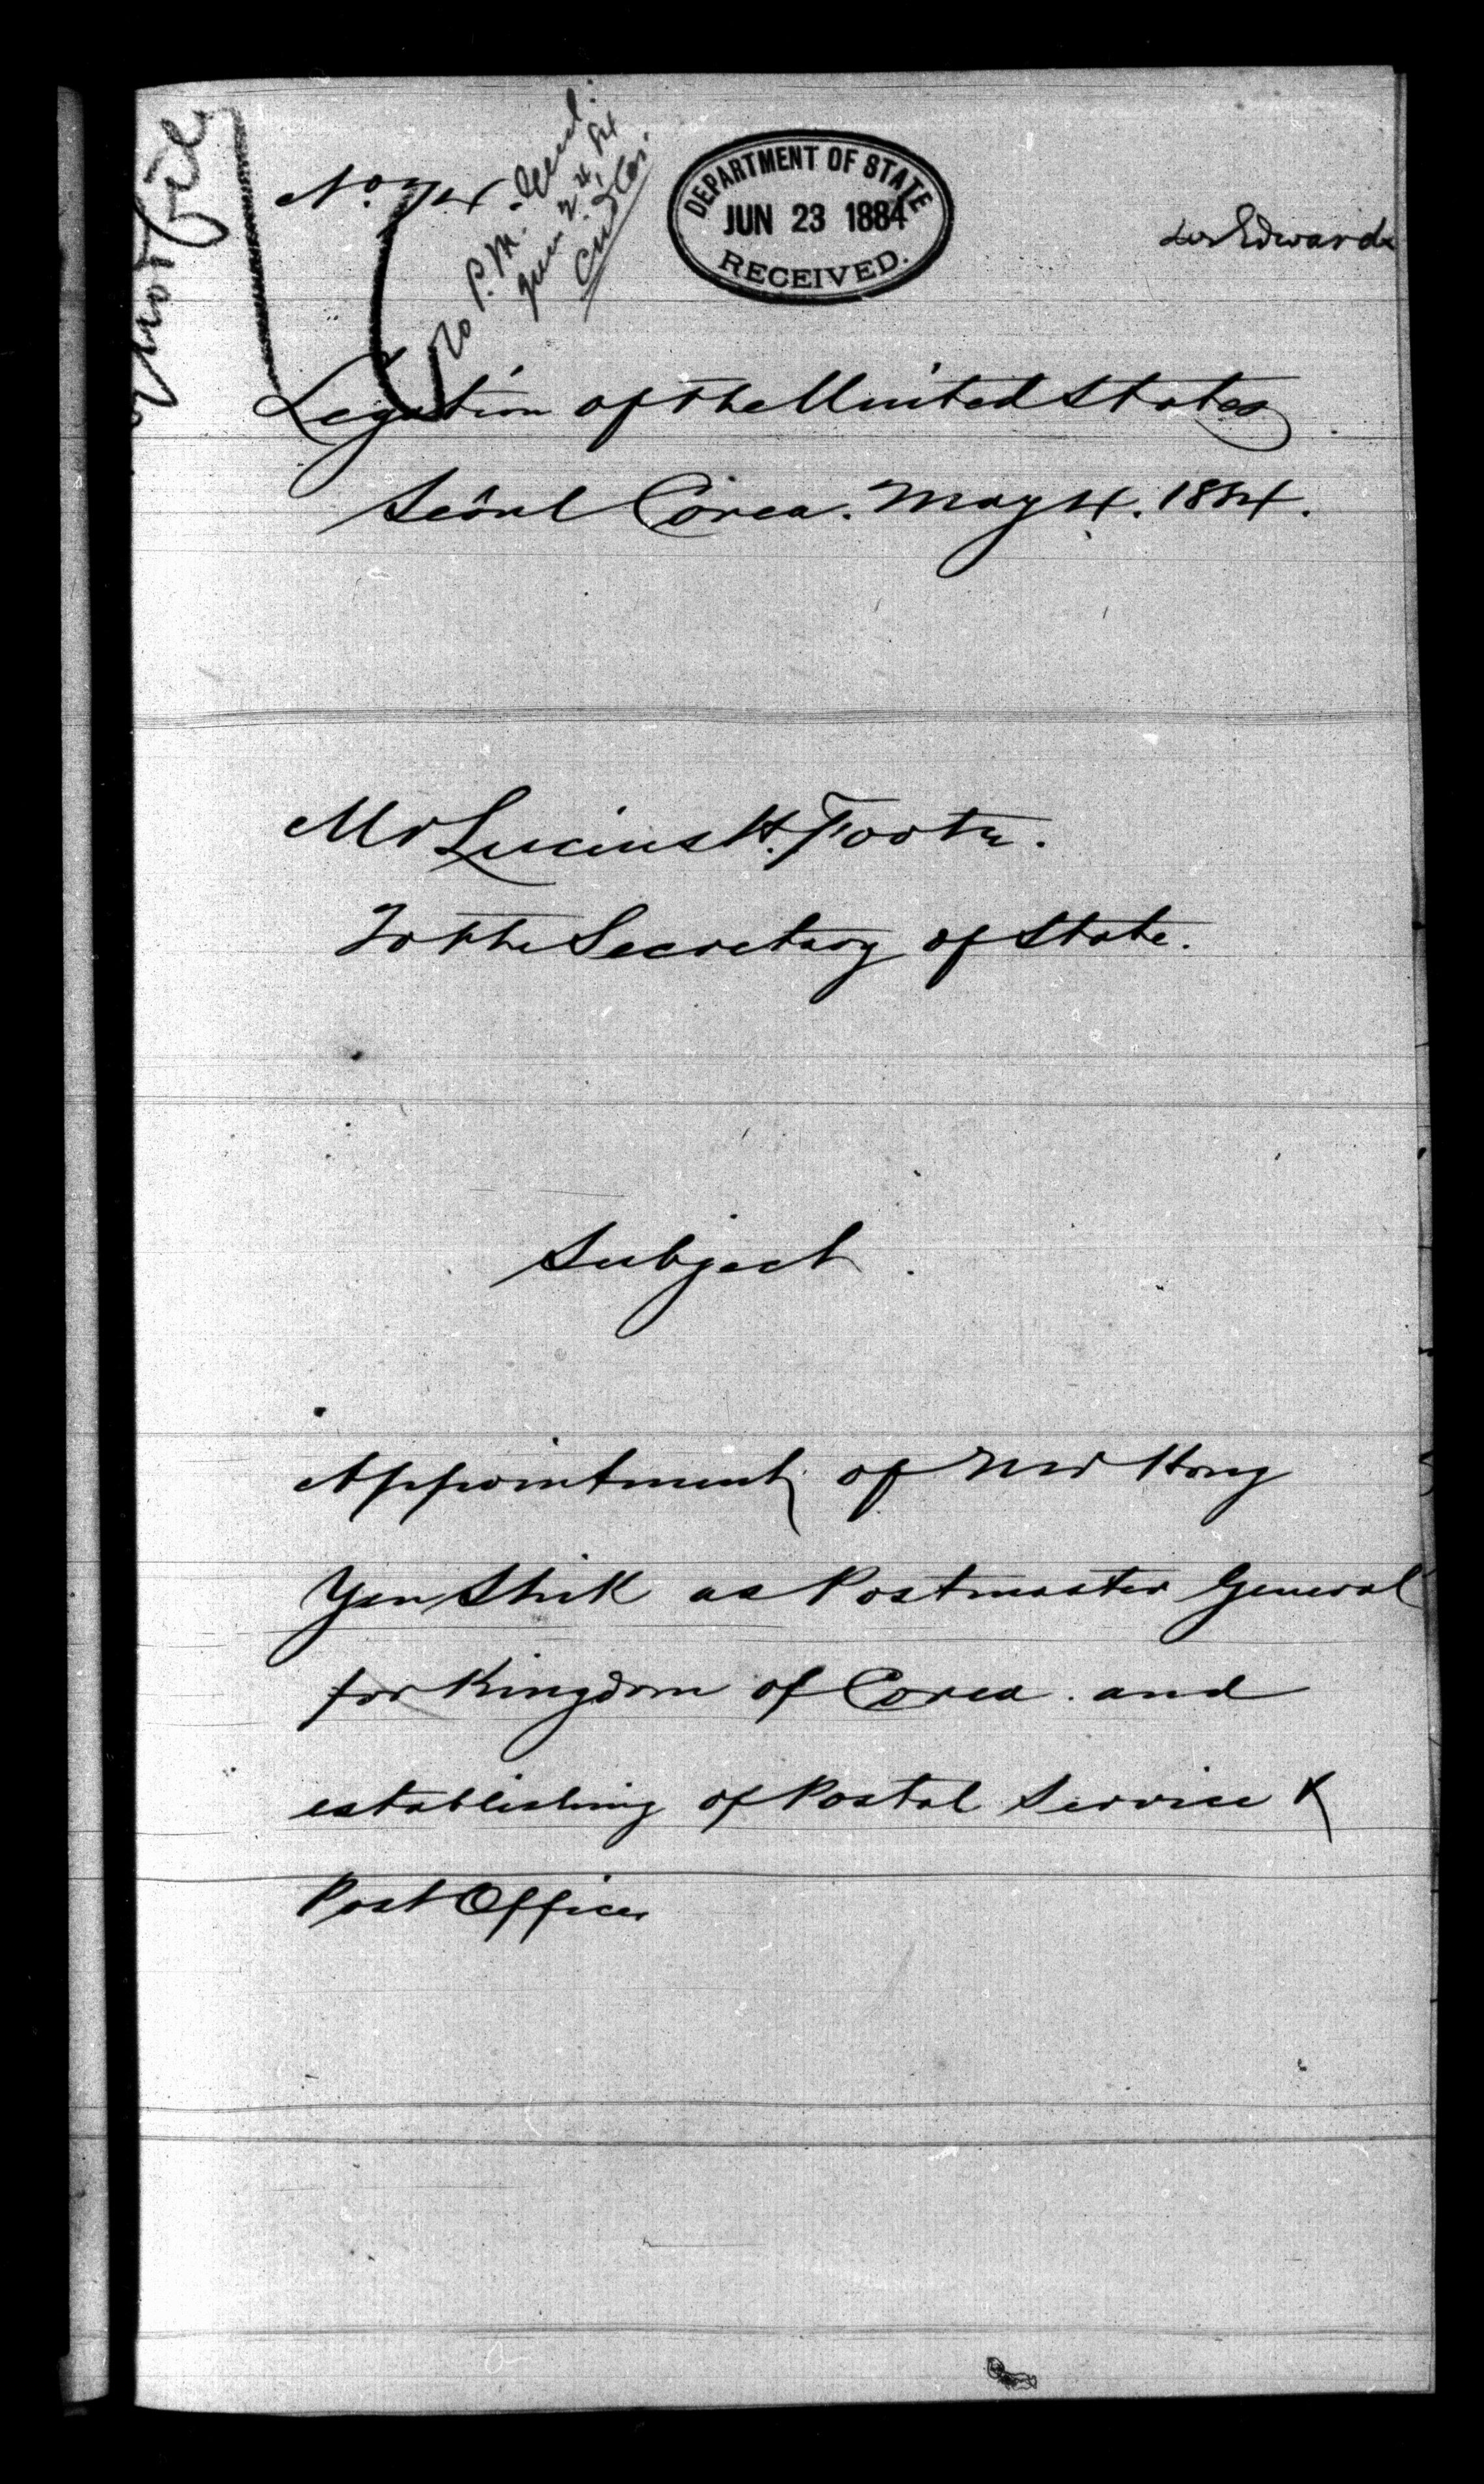 No. 74.
To P. M. Genl.
June 24, 84
DEPARTMENT OF STATE
JUN 23 1884
RECEIVED.
Legation of the United States
Seôul Corea. May 4. 1884.
Mr Lucius H. Foote.
To the Secretary of State.
Subject.
Appointment of Mr Hong
Yen Shik as Postmaster General
for Kingdom of Corea. and
establishing of Postal Service &
Post Offices